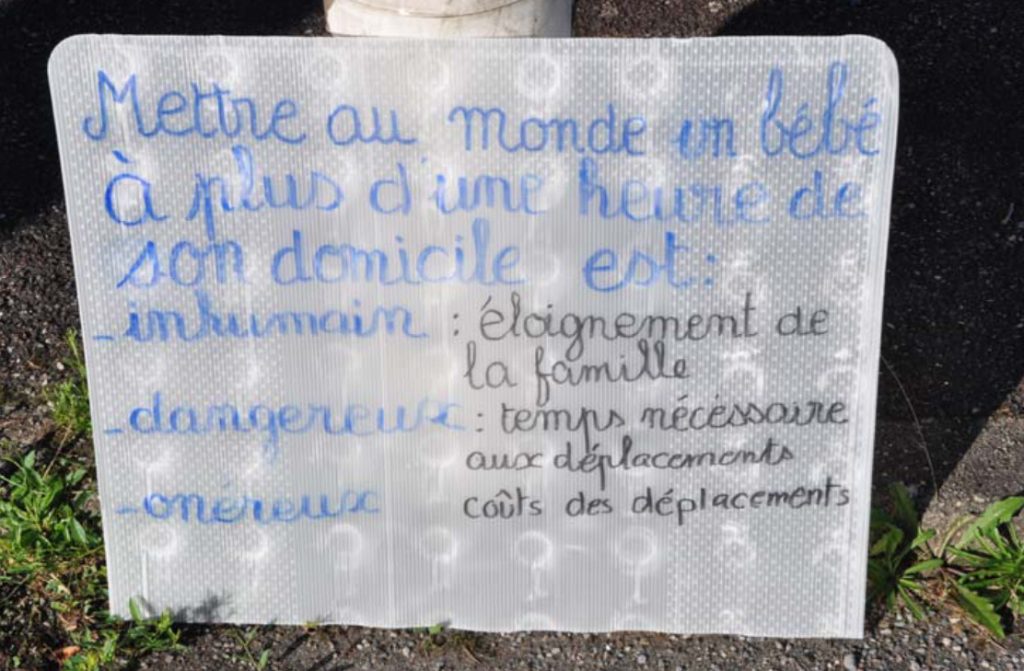 Mettre au monde un bébé
À plus d'une heure de
son domicile est :
- inhumain : éloignement de
la famille
- dangereux : temps nécessaire
aux déplacements
- onéreux coûts des déplacements